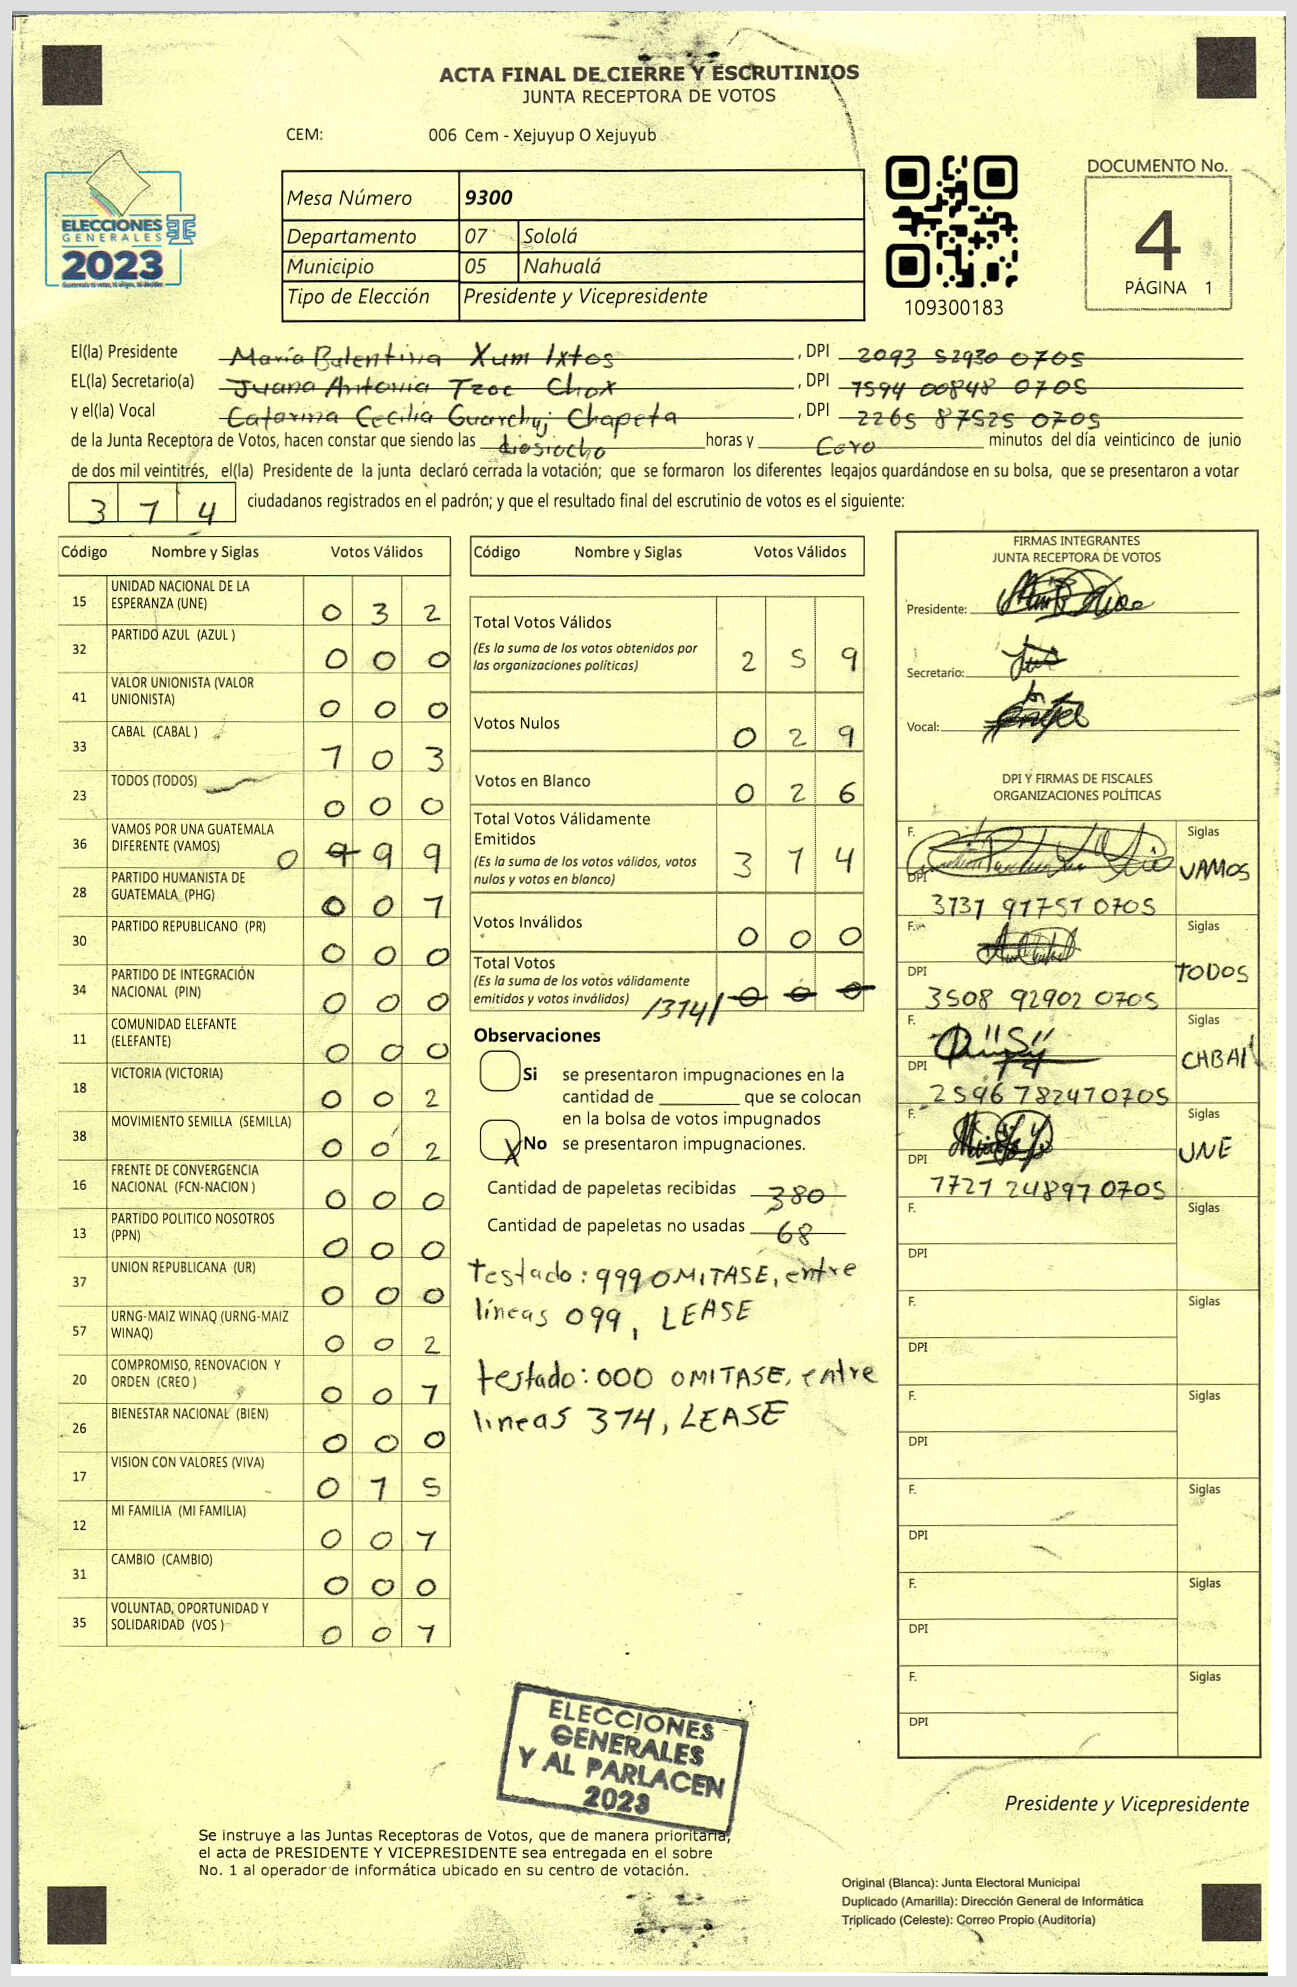 ACTA FINAL DE CIERRE Y ESCRUTINIOS
JUNTA RECEPTORA DE VOTOS
CEM: 006 Cem - Xejuyup O Xejuyub
ELECCIONES
GENERALES
2023
Mesa Número 9300
Departamento 07 Sololá
Municipio 05 Nahualá
Tipo de Elección Presidente y Vicepresidente
109300183
DOCUMENTO No.
4
PÁGINA 1
El(la) Presidente María Balentina Xum Ixtos, DPI 2093 52930 0705
EL(la) Secretario(a) Juana Antonia Tzoc Chox, DPI 1594 00848 0705
y el(la) Vocal Catarina Cecilia Guarchaj Chapeta, DPI 2265 87525 0705
de la Junta Receptora de Votos, hacen constar que siendo las diesiocho horas y Cero minutos del día veinticinco de junio
de dos mil veintitrés, el(la) Presidente de la junta declaró cerrada la votación; que se formaron los diferentes legajos guardándose en su bolsa, que se presentaron a votar
314 ciudadanos registrados en el padrón; y que el resultado final del escrutinio de votos es el siguiente:
Código Nombre y Siglas Votos Válidos
15 UNIDAD NACIONAL DE LA
ESPERANZA (UNE) 0 3 2
32 PARTIDO AZUL (AZUL ) 0 0 0
41 VALOR UNIONISTA (VALOR
UNIONISTA) 0 0 0
33 CABAL (CABAL ) 1 0 3
23 TODOS (TODOS) 0 0 0
36 VAMOS POR UNA GUATEMALA
DIFERENTE (VAMOS) 0 9 9 9
28 PARTIDO HUMANISTA DE
GUATEMALA (PHG) 0 0 1
30 PARTIDO REPUBLICANO (PR) 0 0 0
34 PARTIDO DE INTEGRACIÓN
NACIONAL (PIN) 0 0 0
11 COMUNIDAD ELEFANTE
(ELEFANTE) 0 0 0
18 VICTORIA (VICTORIA) 0 0 2
38 MOVIMIENTO SEMILLA (SEMILLA) 0 0 2
16 FRENTE DE CONVERGENCIA
NACIONAL (FCN-NACION ) 0 0 0
13 PARTIDO POLITICO NOSOTROS
(PPN) 0 0 0
37 UNION REPUBLICANA (UR) 0 0 0
57 URNG-MAIZ WINAQ (URNG-MAIZ
WINAQ) 0 0 2
20 COMPROMISO, RENOVACION Y
ORDEN (CREO ) 0 0 1
26 BIENESTAR NACIONAL (BIEN) 0 0 0
17 VISION CON VALORES (VIVA) 0 1 5
12 MI FAMILIA (MI FAMILIA) 0 0 1
31 CAMBIO (CAMBIO) 0 0 0
35 VOLUNTAD, OPORTUNIDAD Y
SOLIDARIDAD (VOS ) 0 0 1
Código Nombre y Siglas Votos Válidos
Total Votos Válidos
(Es la suma de los votos obtenidos por
las organizaciones políticas) 2 5 9
Votos Nulos 0 2 9
Votos en Blanco 0 2 6
Total Votos Válidamente
Emitidos
(Es la suma de los votos válidos, votos
nulos y votos en blanco) 3 1 4
Votos Inválidos 0 0 0
Total Votos
(Es la suma de los votos válidamente
emitidos y votos inválidos) /314/ 0 0 0
Observaciones
Si se presentaron impugnaciones en la
cantidad de ________ que se colocan
en la bolsa de votos impugnados
X No se presentaron impugnaciones.
Cantidad de papeletas recibidas 380
Cantidad de papeletas no usadas 68
testado: 999 OMITASE, entre
líneas 099, LEASE
testado: 000 OMITASE, entre
lineas 314, LEASE
FIRMAS INTEGRANTES
JUNTA RECEPTORA DE VOTOS
Presidente:
Secretario:
Vocal:
DPI Y FIRMAS DE FISCALES
ORGANIZACIONES POLÍTICAS
F. Siglas
VAMOS
DPI
3131 91751 0705
F. Siglas
TODOS
DPI
3508 92902 0705
F. Siglas
CABAL
DPI
2596 78247 0705
F. Siglas
UNE
DPI
1721 24897 0705
F. Siglas
DPI
F. Siglas
DPI
F. Siglas
DPI
F. Siglas
DPI
F. Siglas
DPI
F. Siglas
DPI
ELECCIONES
GENERALES
Y AL PARLACEN
2023
Presidente y Vicepresidente
Se instruye a las Juntas Receptoras de Votos, que de manera prioritaria,
el acta de PRESIDENTE Y VICEPRESIDENTE sea entregada en el sobre
No. 1 al operador de informática ubicado en su centro de votación.
Original (Blanca): Junta Electoral Municipal
Duplicado (Amarilla): Dirección General de Informática
Triplicado (Celeste): Correo Propio (Auditoría)